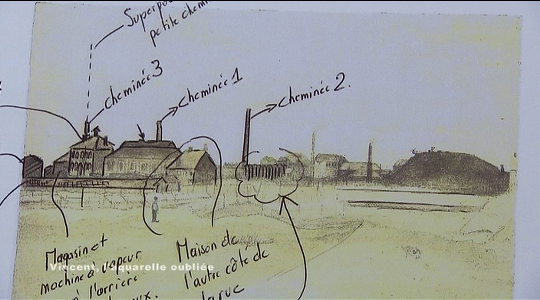 petite
cheminée 3
cheminée 1
cheminée 2.
Magasin et
machine à vapeur
à l'arrière
Maison de
l'autre côté de
la rue
Vincent, l'aquarelle oubliée